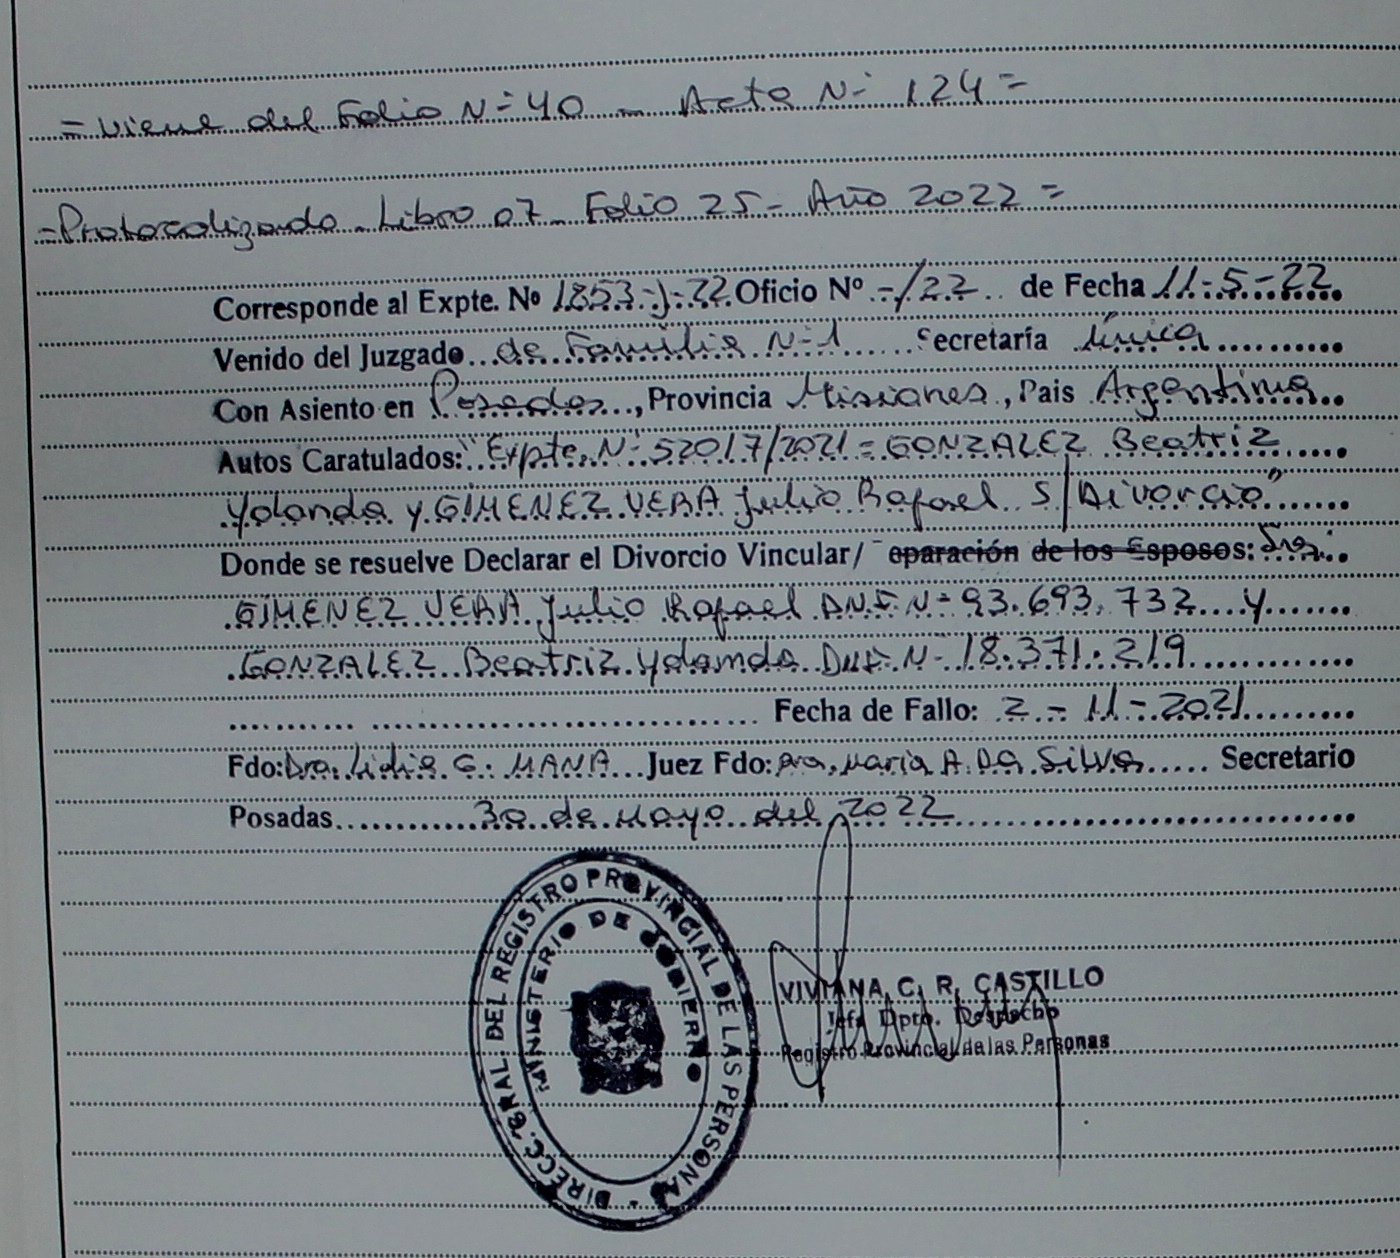 = Viene del Folio N= 40 - Acta N- 124 =
= Protocolizado - Libro 07 - Folio 25 - Año 2022 =
Corresponde al Expte. Nº 1853-J-22 Oficio Nº -/22 de Fecha 11-5-22
Venido del Juzgado de Familia N-1 Secretaría única
Con Asiento en Posadas, Provincia Misiones, Pais Argentina
Autos Caratulados: "Expte. N- 52017/2021 = GONZALEZ Beatriz
Yolanda y GIMENEZ VERA Julio Rafael S/Divorcio"
Donde se resuelve Declarar el Divorcio Vincular/ eparación de los Esposos:
GIMENEZ VERA Julio Rafael D.N.I. N= 93.693.732 y
GONZALEZ Beatriz Yolanda D.N.I. N- 18.371.219
Fecha de Fallo: 2 - 11 - 2021
Fdo: Dra. Lidia G. MANA Juez Fdo: Dra. Maria A. Da Silva Secretario
Posadas 30 de Mayo del 2022
DIRECC. GRAL. DEL REGISTRO PROVINCIAL DE LAS PERSONAS
MINISTERIO DE GOBIERNO
VIVIANA C. R. CASTILLO
Jefa Dpto. Despacho
Registro Provincial de las Personas